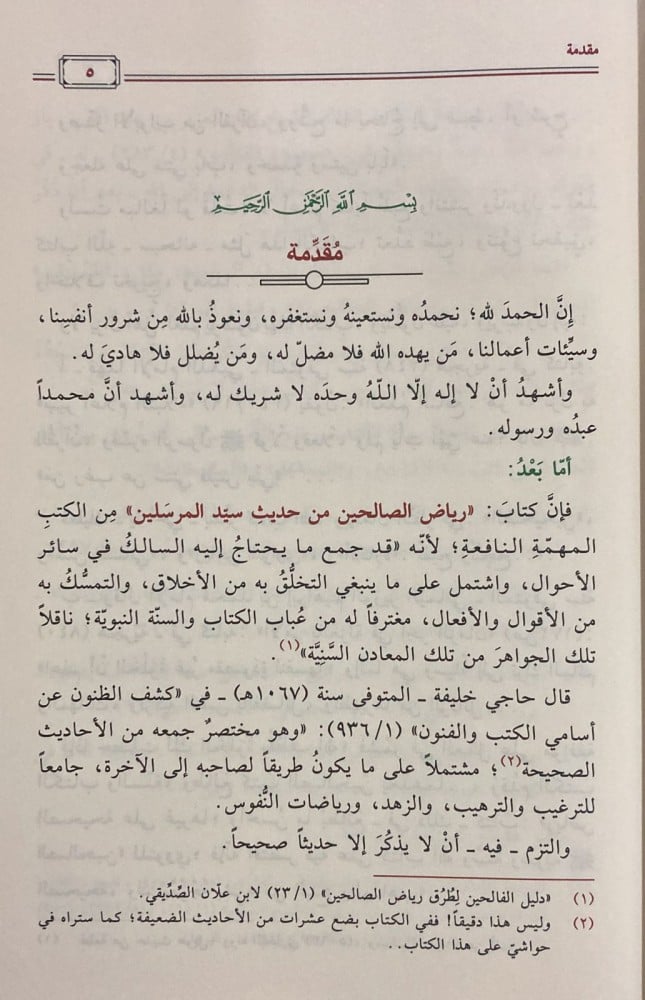 مقدمة
٥
بِسْمِ اللَّهِ الرَّحْمَٰنِ الرَّحِيمِ
مُقَدِّمة
إنَّ الحمدَ لله؛ نحمدُه ونستعينهُ ونستغفره، ونعوذُ بالله مِن شرور أنفسِنا،
وسيِّئات أعمالنا، مَن يهده الله فلا مضلّ له، ومَن يُضلل فلا هاديَ له.
وأشهدُ أنْ لا إله إلّا اللّهُ وحدَه لا شريك له، وأشهد أنَّ محمداً
عبدُه ورسوله.
أمّا بَعْدُ:
فإنَّ كتابَ: «رياض الصالحين من حديثِ سيّد المرسَلين» مِن الكتبِ
المهمّةِ النافعةِ؛ لأنّه «قد جمع ما يحتاجُ إليه السالكُ في سائر
الأحوال، واشتمل على ما ينبغي التخلُّقُ به من الأخلاق، والتمسُّكُ به
من الأقوال والأفعال، مغترفاً له من عُباب الكتاب والسنّة النبويّة؛ ناقلاً
تلك الجواهرَ من تلك المعادن السَّنِيَّة»(١).
قال حاجي خليفة ـ المتوفى سنة (١٠٦٧هـ) ـ في «كشف الظنون عن
أسامي الكتب والفنون» (١/ ٩٣٦): «وهو مختصرٌ جمعه من الأحاديث
الصحيحة(٢)؛ مشتملاً على ما يكونُ طريقاً لصاحبه إلى الآخرة، جامعاً
للترغيب والترهيب، والزهد، ورياضات النُّفوس.
والتزم ـ فيه ـ أنْ لا يذكُرَ إلا حديثاً صحيحاً.
(١) «دليل الفالحين لِطُرُق رياض الصالحين» (١/ ٢٣) لابن علّان الصِّدِّيقي.
(٢) وليس هذا دقيقاً! ففي الكتاب بضع عشرات من الأحاديث الضعيفة؛ كما ستراه في
حواشيّ على هذا الكتاب..